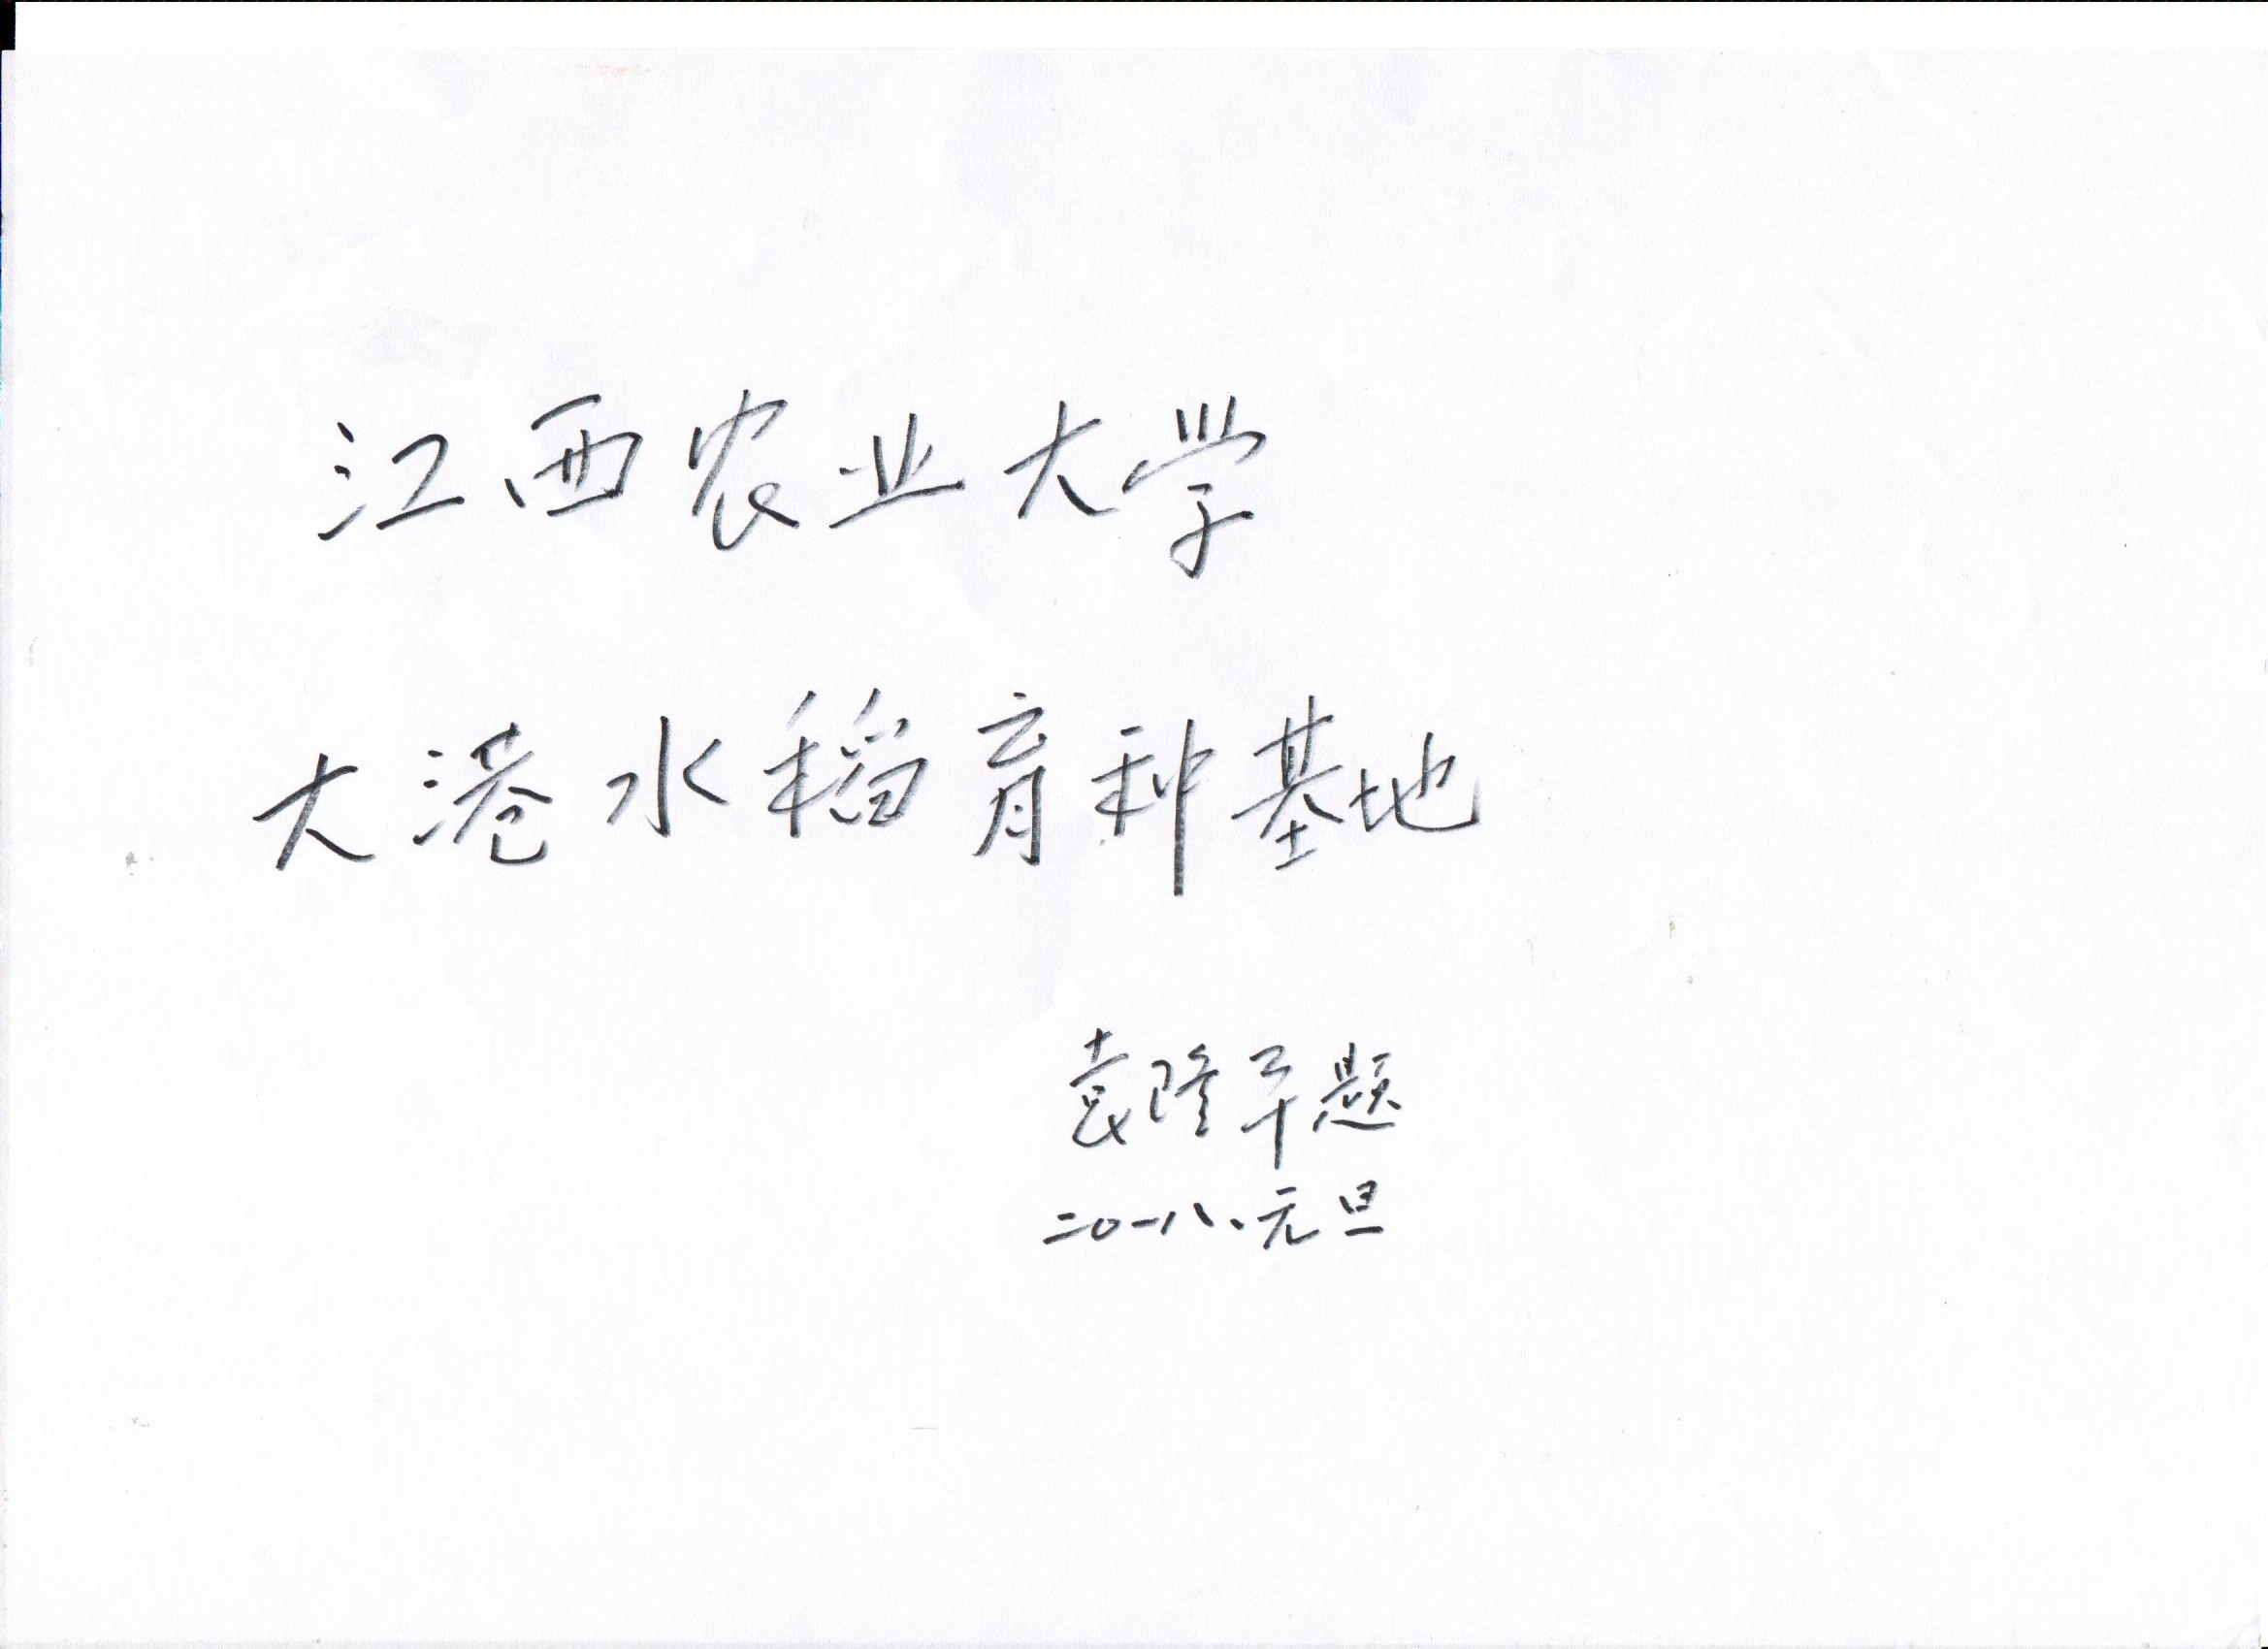 江西农业大学
大港水稻育种基地
袁隆平题
二〇一八、元旦